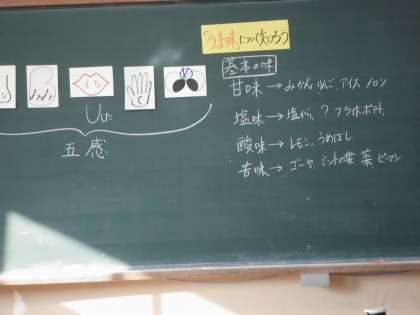 「うま味」について知ろう
基本の味
甘味→みかん りんご アイス メロン
塩味→塩から、? フライドポテト
酸味→レモン、うめぼし
苦味→ゴーヤ、ミントの葉 薬 ピーマン
くち
め
した
五感